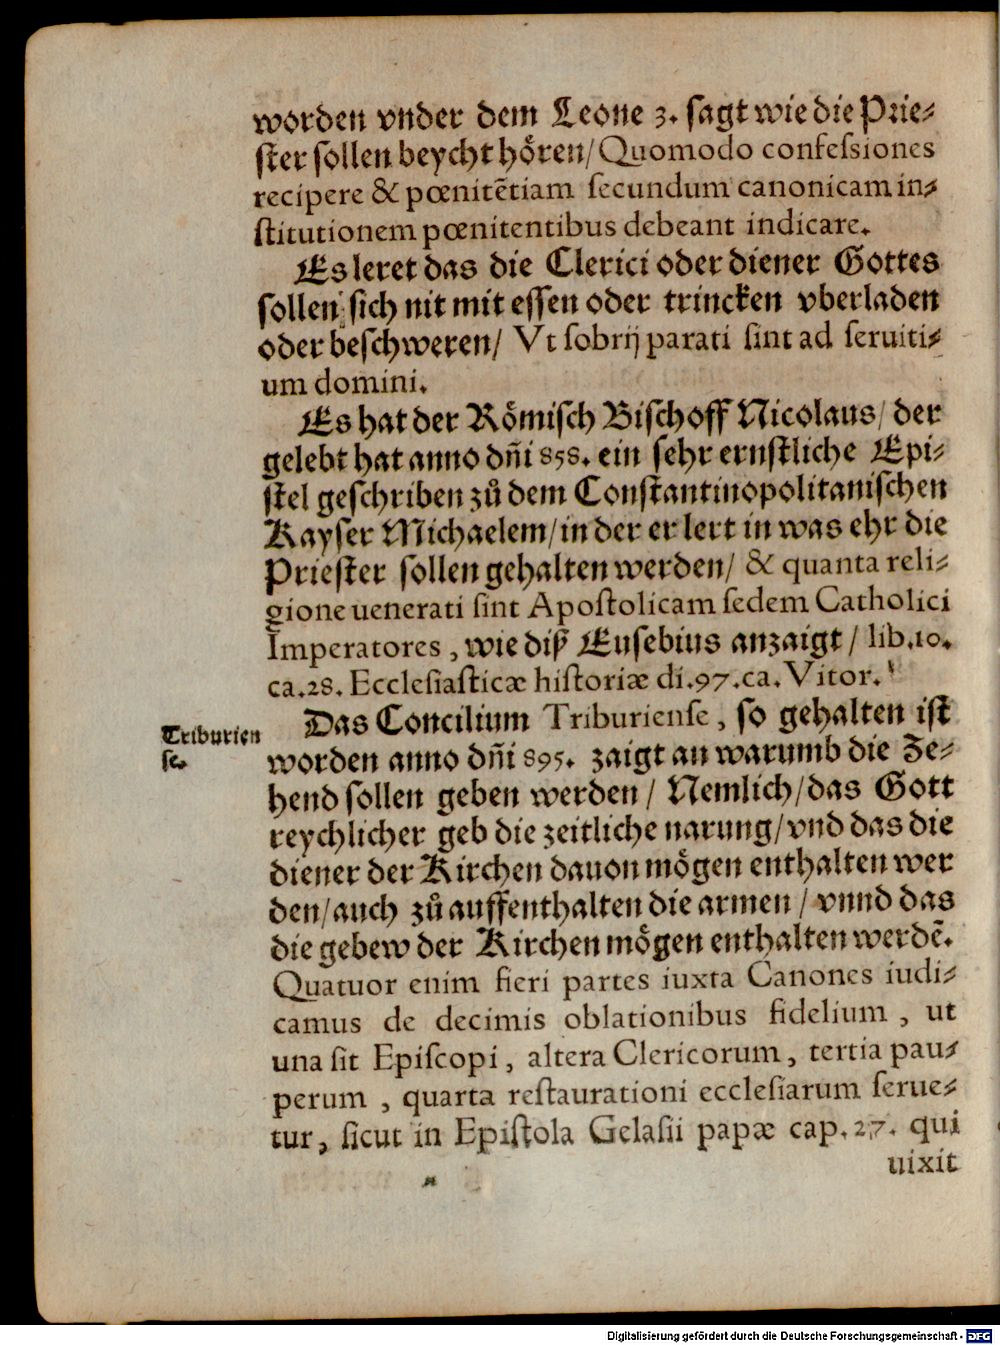 worden vnder dem Leone 3. sagt wie die Prie⸗
ster sollen beycht hören/ Quomodo confeſsiones
recipere & pœnitẽtiam ſecundum canonicam in⸗
ſtitutionem pœnitentibus debeant indicare.
Es leret das die Clerici oder diener Gottes
ſollen ſich nit mit eſſen oder trincken vberladen
oder beſchweren/ Vt ſobrij parati ſint ad ſeruiti⸗
um domini.
Es hat der Römiſch Biſchoff Nicolaus/ der
gelebt hat anno dñi 858. ein ſehr ernſtliche Epi⸗
ſtel geſchriben zů dem Conſtantinopolitaniſchen
Kayſer Michaelem/ in der er lert in was ehr die
Prieſter ſollen gehalten werden/ & quanta reli⸗
gione uenerati ſint Apoſtolicam ſedem Catholici
Imperatores, wie diß Euſebius anzaigt/ lib.10.
ca.28. Eccleſiaſticæ hiſtoriæ di.97.ca. Vitor.
Das Concilium Triburienſe, ſo gehalten iſt
Triburien
ſe.
worden anno dñi 895. zaigt an warumb die Ze⸗
hend ſollen geben werden/ Nemlich/ das Gott
reychlicher geb die zeitliche narung/ vnd das die
diener der Kirchen dauon mögen enthalten wer
den/ auch zů auffenthalten die armen/ vnnd das
die gebew der Kirchen mögen enthalten werdẽ.
Quatuor enim fieri partes iuxta Canones iudi⸗
camus de decimis oblationibus fidelium, ut
una ſit Epiſcopi, altera Clericorum, tertia pau⸗
perum, quarta reſtaurationi eccleſiarum ſerue⸗
tur, ſicut in Epiſtola Gelaſii papæ cap. 27. qui
uixit
Digitalisierung gefördert durch die Deutsche Forschungsgemeinschaft - DFG